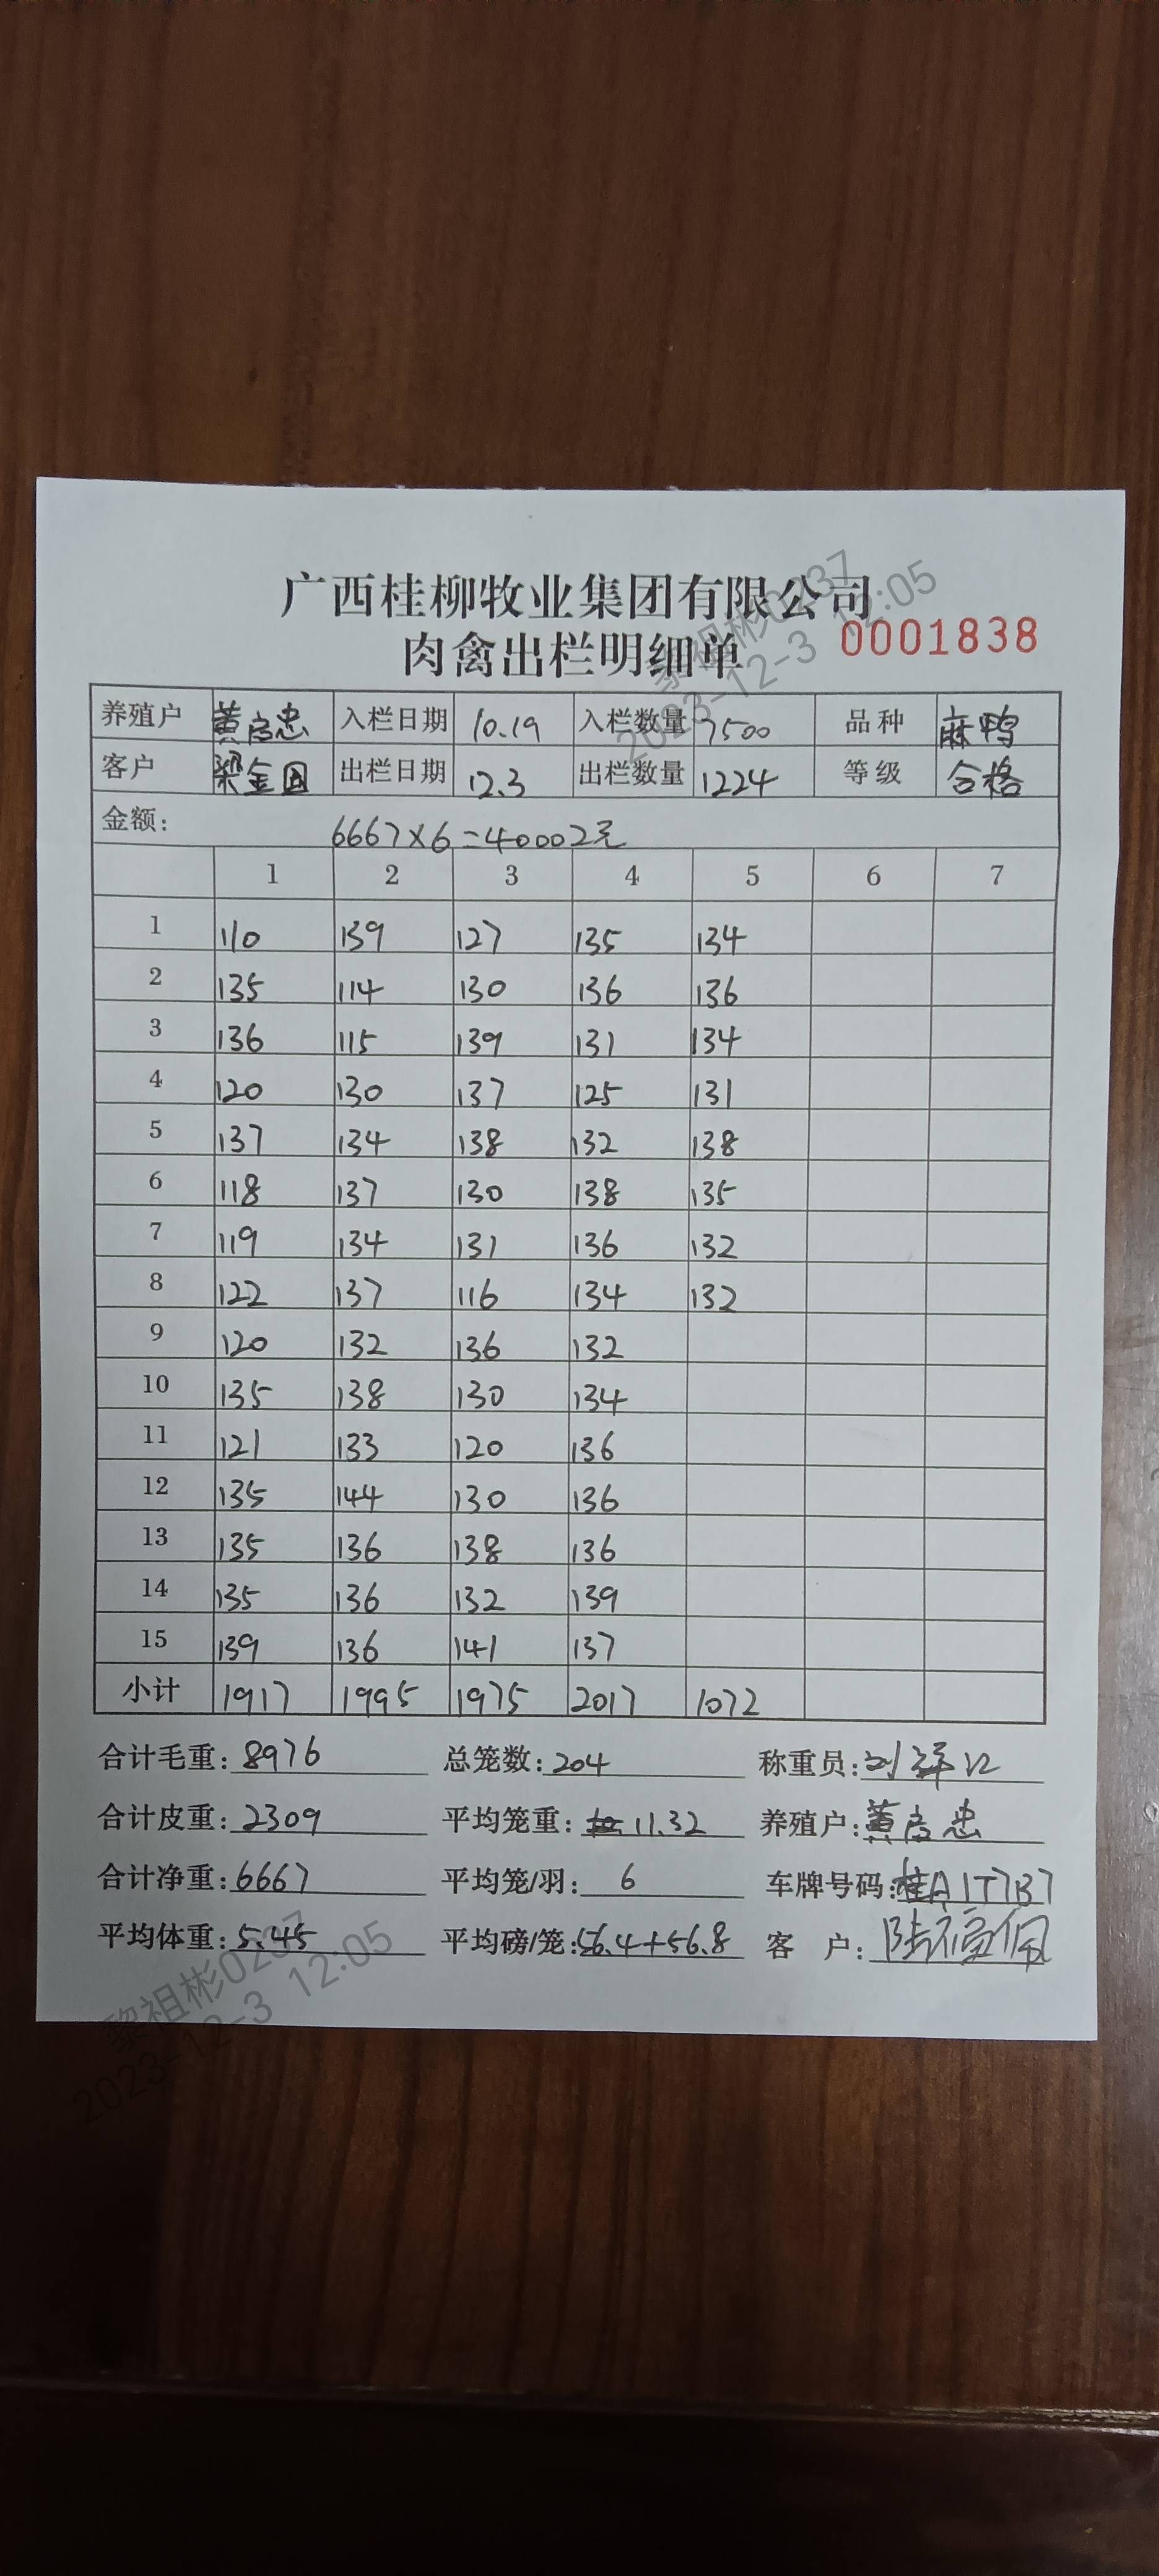 广西桂柳牧业集团有限公司
肉禽出栏明细单 0001838
养殖户 黄启忠 入栏日期 10.19 入栏数量 7500 品种 麻鸭
客户 梁金国 出栏日期 12.3 出栏数量 1224 等级 合格
金额: 6667×6=40002元
1 2 3 4 5 6 7
1 110 139 127 135 134
2 135 114 130 136 136
3 136 115 139 131 134
4 120 130 137 125 131
5 137 134 138 132 138
6 118 137 130 138 135
7 119 134 131 136 132
8 122 137 116 134 132
9 120 132 136 132
10 135 138 130 134
11 121 133 120 136
12 135 144 130 136
13 135 136 138 136
14 135 136 132 139
15 139 136 141 137
小计 1917 1995 1975 2017 1072
合计毛重: 8976 总笼数: 204 称重员: 刘
合计皮重: 2309 平均笼重: 11.32 养殖户: 黄启忠
合计净重: 6667 平均笼/羽: 6 车牌号码: 桂A1T7B7
平均体重: 5.45 平均磅/笼: 56.4+56.8 客 户: 陆福佩
黎祖彬0237
2023-12-3 12:05
黎祖彬0237
2023-12-3 12:05